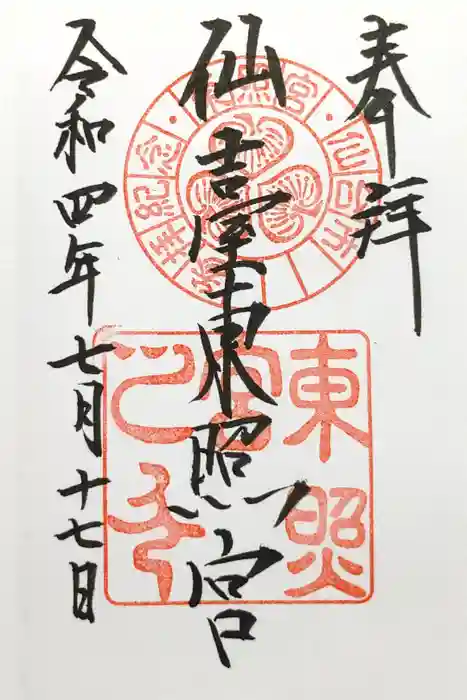 奉拝
仙臺東照宮
令和四年七月十七日
東照宮之印
東照宮 仙台市 参拝記念